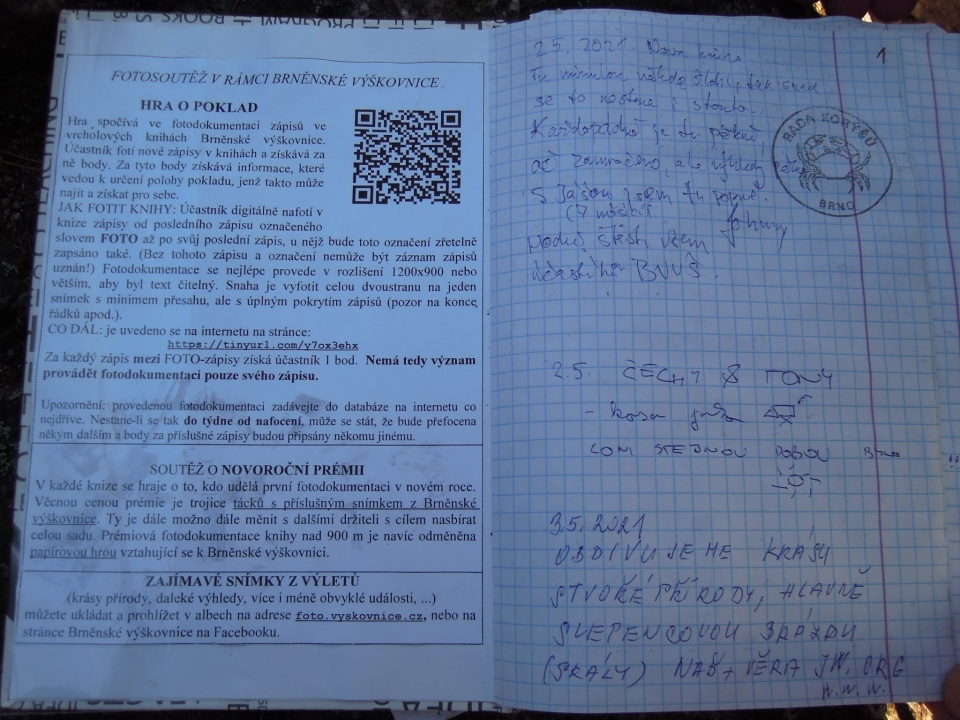 FOTOSOUTĚŽ V RÁMCI BRNĚNSKÉ VÝŠKOVNICE
HRA O POKLAD
Hra spočívá ve fotodokumentaci zápisů ve
vrcholových knihách Brněnské výškovnice.
Účastník fotí nové zápisy v knihách a získává za
ně body. Za tyto body získává informace, které
vedou k určení polohy pokladu, jenž takto může
najít a získat pro sebe.
JAK FOTIT KNIHY: Účastník digitálně nafotí v
knize zápisy od posledního zápisu označeného
slovem FOTO až po svůj poslední zápis, u nějž bude toto označení zřetelně
zapsáno také. (Bez tohoto zápisu a označení nemůže být záznam zápisů
uznán!) Fotodokumentace se nejlépe provede v rozlišení 1200x900 nebo
větším, aby byl text čitelný. Snaha je vyfotit celou dvoustranu na jeden
snímek s minimem přesahu, ale s úplným pokrytím zápisů (pozor na konce
řádků apod.).
CO DÁL: je uvedeno se na internetu na stránce:
https://tinyurl.com/y7ox3ehx
Za každý zápis mezi FOTO-zápisy získá účastník 1 bod. Nemá tedy význam
provádět fotodokumentaci pouze svého zápisu.
Upozornění: provedenou fotodokumentaci zadávejte do databáze na internetu co
nejdříve. Nestane-li se tak do týdne od nafocení, může se stát, že bude přefocena
někým dalším a body za příslušné zápisy budou připsány někomu jinému.
SOUTĚŽ O NOVOROČNÍ PRÉMII
V každé knizce se hraje o to, kdo udělá první fotodokumentaci v novém roce.
Věcnou cenou prémie je trojice tácků s příslušným snímkem z Brněnské
výškovnice. Ty je dále možno dále měnit s dalšími držiteli s cílem nasbírat
celou sadu. Prémiová fotodokumentace knihy nad 900 m je navíc odměněna
papírovou hrou vztahující se k Brněnské výškovnici.
ZAJÍMAVÉ SNÍMKY Z VÝLETŮ
(krásy přírody, daleké výhledy, více i méně obvyklé události, ...)
můžete ukládat a prohlížet v albech na adrese foto.vyskovnice.cz, nebo na
stránce Brněnské výškovnice na Facebooku.
1
2.5. 2021 Nová kniha
Tu minulou někdo, tak snad
se to nestane i s touto.
Každopádně je tu pěkně,
ač zamračeno, ale výhledy
S jsem tu poprvé.
všem
BVVŠ.
RADA KORÝŠŮ
BRNO
2.5. ČECHY & TONY
- kosa jak
LONI STEJNOU DOBOU
3.5.2021
OBDIVUJEME KRÁSY
STVOŘ. PŘÍRODY, HLAVNĚ
SLEPENCOVOU BRÁZDU
(SKÁLY) VĚRA JW.ORG